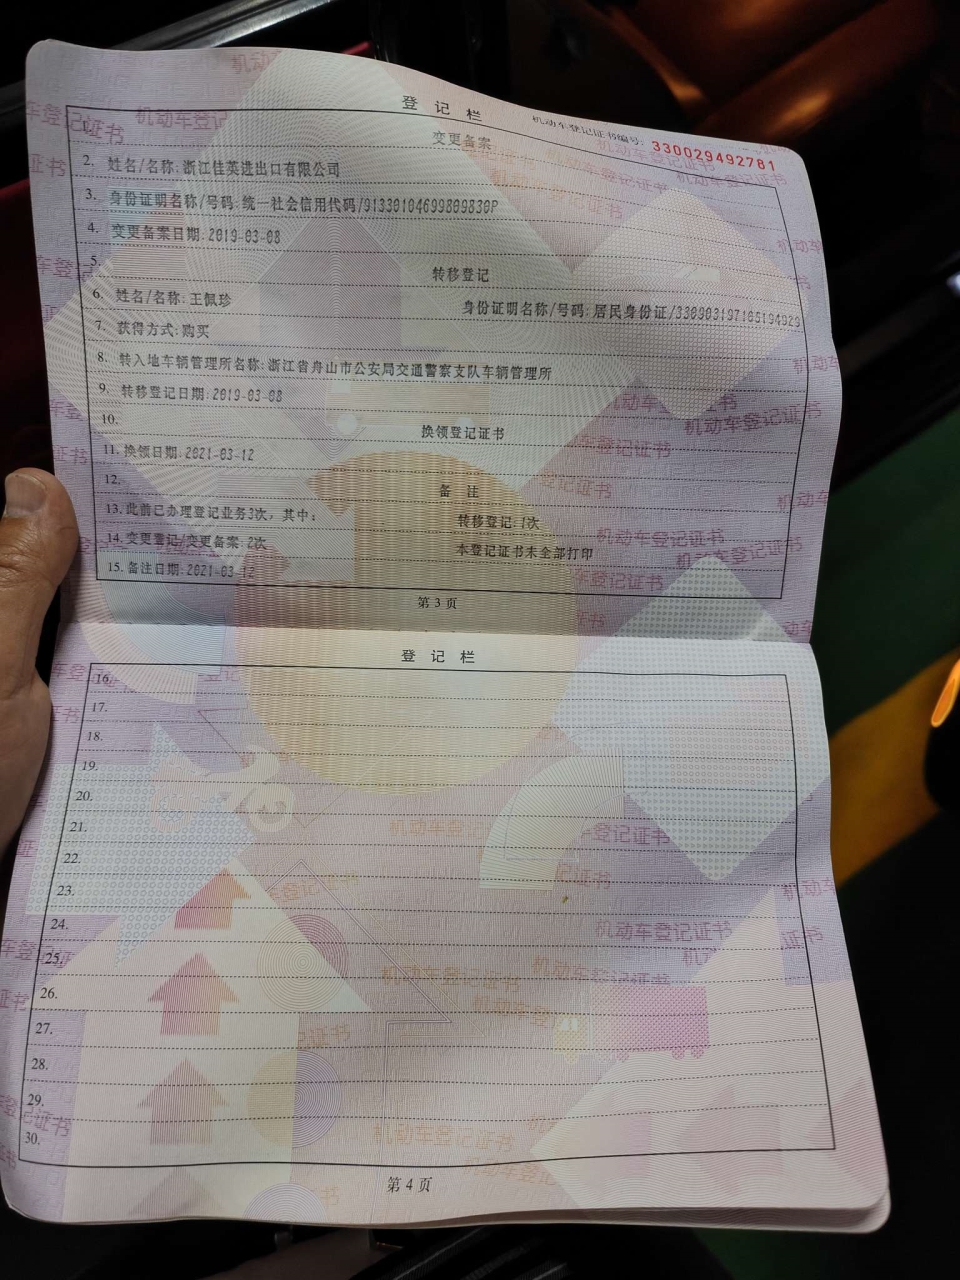 登 记 栏
机动车登记证书编号: 330029492781
1. 变更备案
2. 姓名/名称: 浙江佳英进出口有限公司
3. 身份证明名称/号码: 统一社会信用代码/91330104699809830P
4. 变更备案日期: 2019-03-08
5. 转移登记
6. 姓名/名称: 王佩珍 身份证明名称/号码: 居民身份证/
7. 获得方式: 购买
8. 转入地车辆管理所名称: 浙江省舟山市公安局交通警察支队车辆管理所
9. 转移登记日期: 2019-03-08
10. 换领登记证书
11. 换领日期: 2021-03-12
12. 备 注
13. 此前已办理登记业务3次，其中: 转移登记: 1次
14. 变更登记/变更备案: 2次 本登记证书未全部打印
15. 备注日期: 2021-03-12
第 3 页
登 记 栏
16.
17.
18.
19.
20.
21.
22.
23.
24.
25.
26.
27.
28.
29.
30.
第 4 页